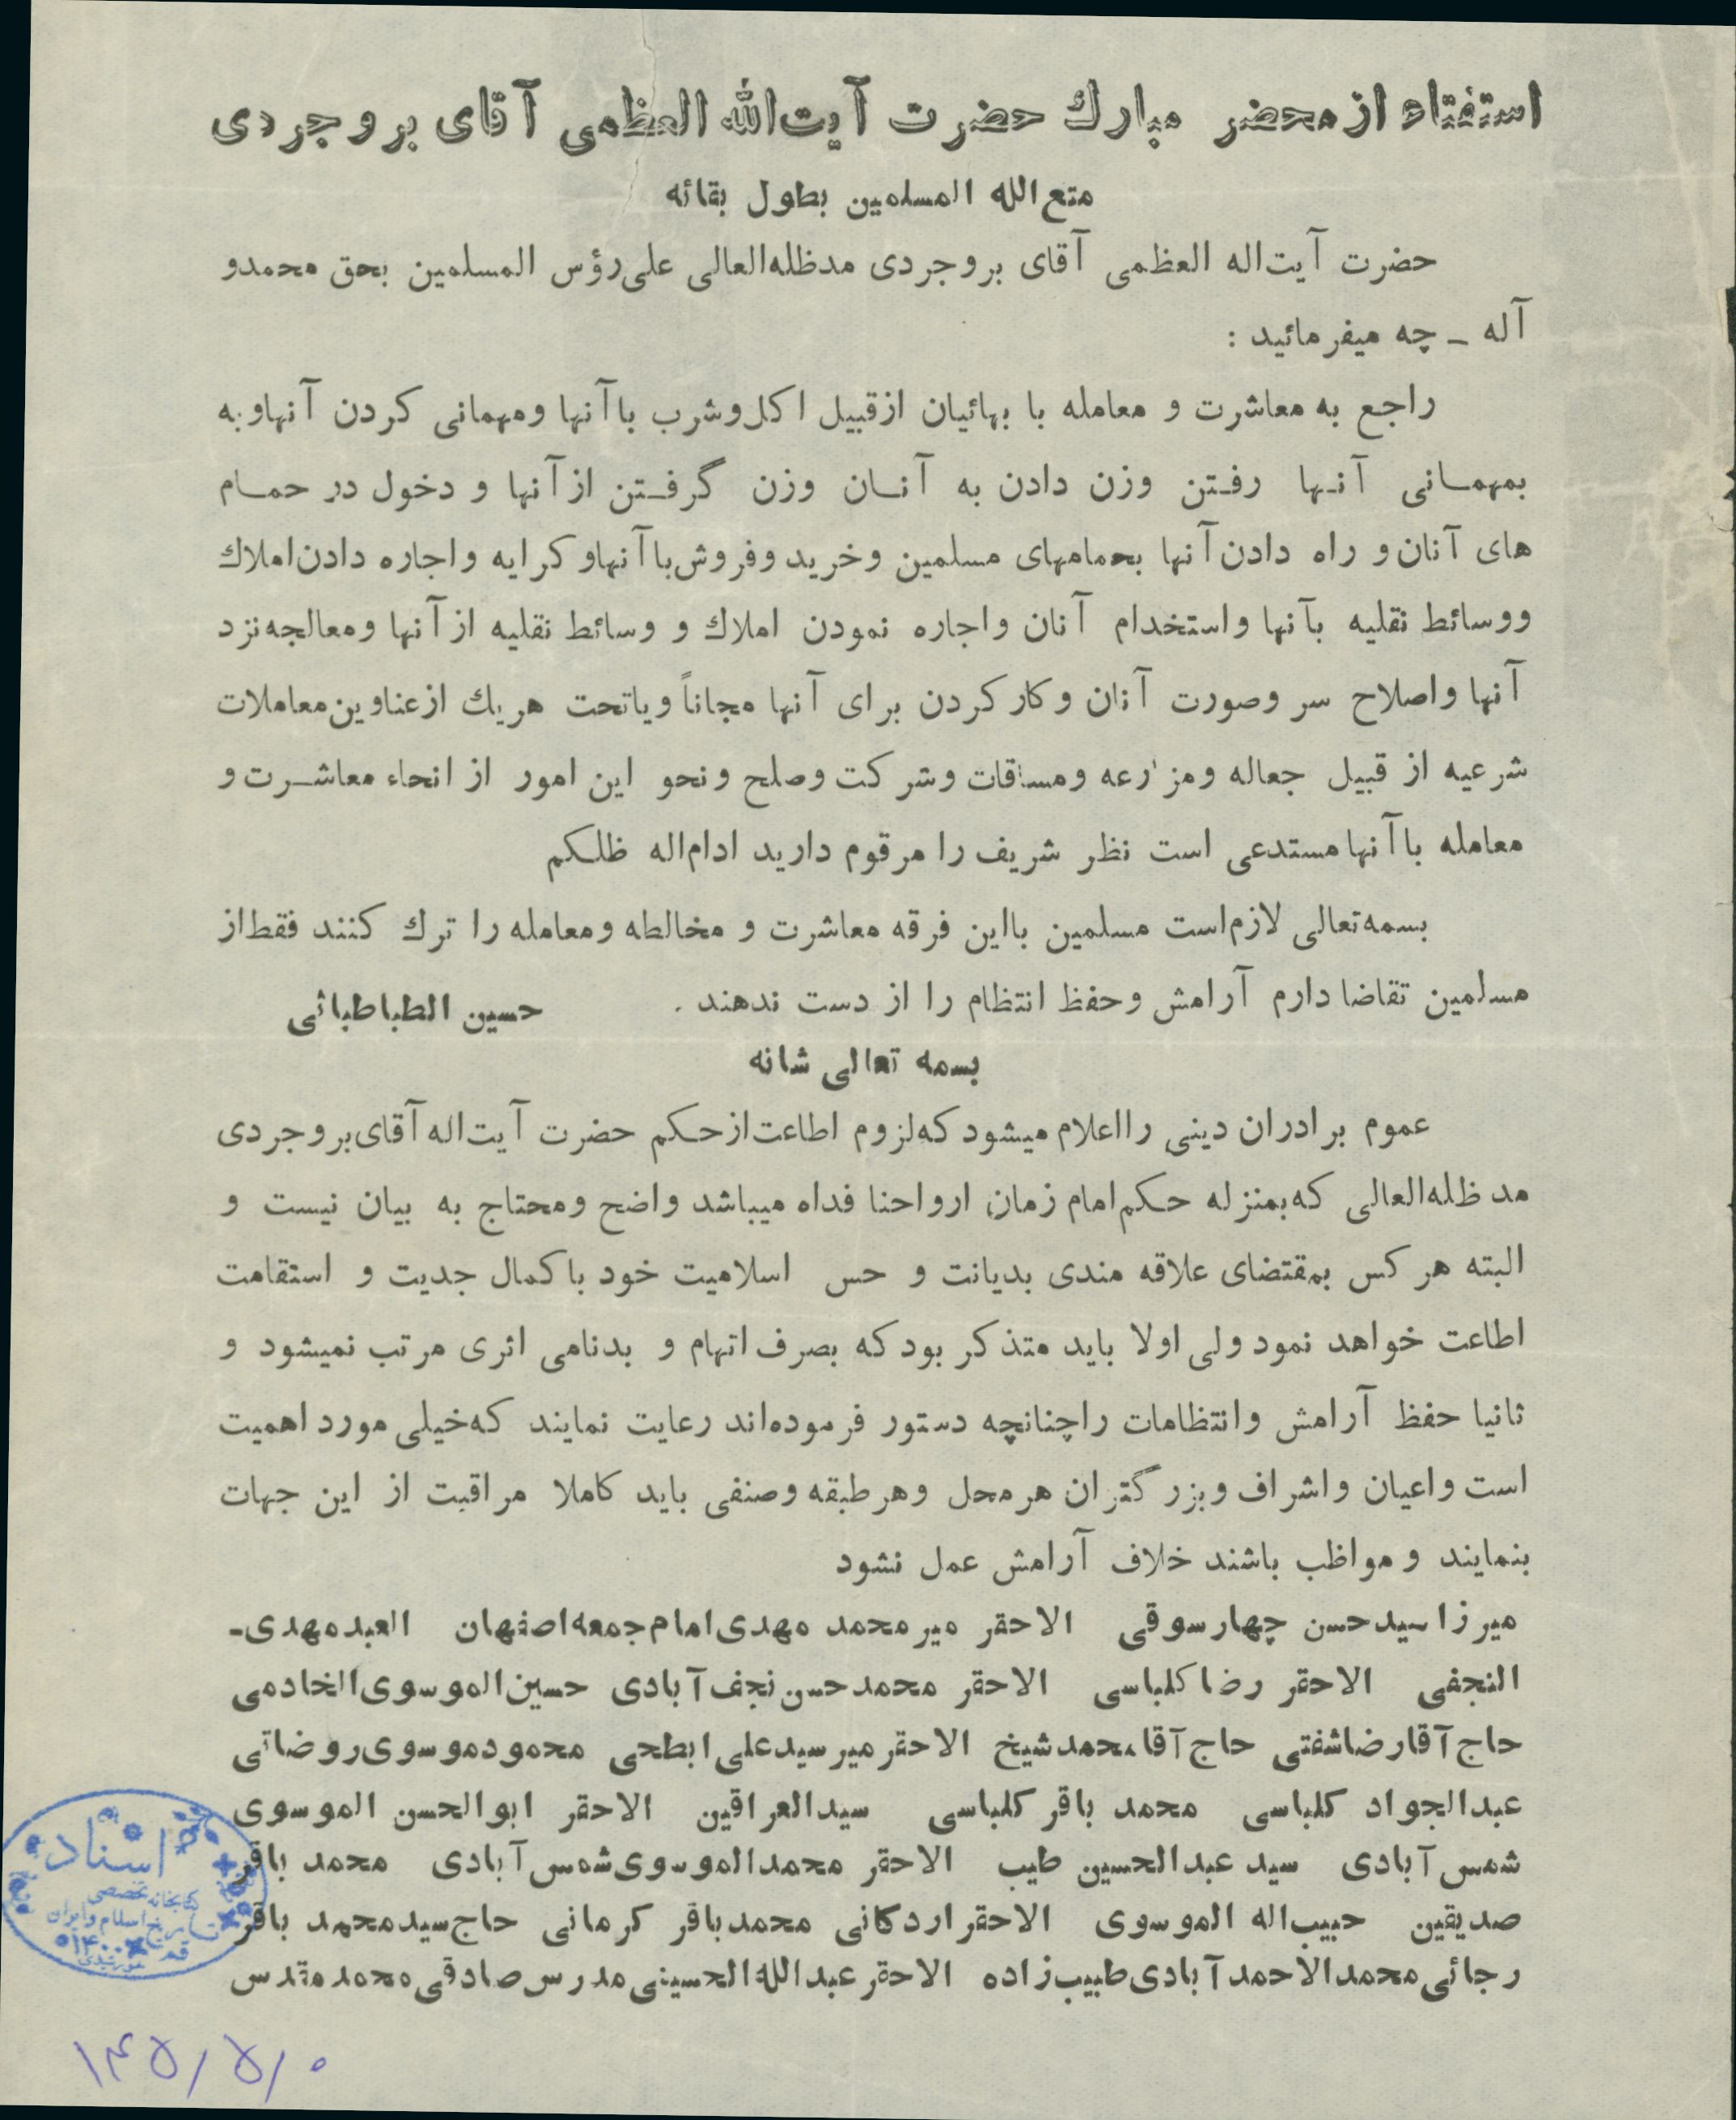 استفتاء از محضر مبارك حضرت آیت‌الله العظمی آقای بروجردی
متع‌الله المسلمین بطول بقائه
حضرت آیت‌اله العظمی آقای بروجردی مدظله‌العالی علی‌رؤس المسلمین بحق محمدو
آله ـ چه میفرمائید :
راجع به معاشرت و معامله با بهائیان ازقبیل اکل‌وشرب باآنها ومهمانی کردن آنهاوبه
بمهمـانی آنـها رفـتن وزن دادن به آنـان وزن گرفـتن ازآنها و دخول در حمـام
های آنان‌و راه دادن‌آنها بحمامهای مسلمین وخرید وفروش‌باآنهاوکرایه واجاره دادن‌املاك
ووسائط نقلیه بآنها واستخدام آنان واجاره نمودن املاك و وسائط نقلیه ازآنها ومعالجه‌نزد
آنها واصلاح سر وصورت آنان وکارکردن برای آنها مجاناً ویاتحت هریك ازعناوین‌معاملات
شرعیه از قبیل جعاله ومزارعه ومساقات وشرکت وصلح ونحو این امور از انحاء معاشـرت و
معامله باآنهامستدعی است نظر شریف را مرقوم دارید ادام‌اله ظلکم
بسمه‌تعالی لازم‌است مسلمین بااین فرقه معاشرت و مخالطه ومعامله را ترك کنند فقط‌از
مسلمین تقاضا دارم آرامش وحفظ انتظام را از دست ندهند . حسین الطباطبائی
بسمه تعالی شانه
عموم برادران دینی رااعلام میشود که‌لزوم اطاعت‌ازحکم حضرت آیت‌اله‌آقای‌بروجردی
مد ظله‌العالی که‌بمنزله حکم‌امام زمان ارواحنا فداه میباشد واضح ومحتاج به بیان نیست و
البته هر کس بمقتضای علاقه مندی بدیانت و حس اسلامیت خود باکمال جدیت و استقامت
اطاعت خواهد نمود ولی اولا باید متذکر بودکه بصرف‌اتهام و بدنامی اثری مرتب نمیشود و
ثانیا حفظ آرامش وانتظامات راچنانچه دستور فرموده‌اند رعایت نمایند که‌خیلی مورد اهمیت
است واعیان واشراف وبزرگتران هرمحل وهرطبقه وصنفی باید کاملا مراقبت از این جهات
بنمایند ومواظب باشند خلاف آرامش عمل نشود
میرزا سیدحسن چهارسوقی الاحقر میرمحمد مهدی‌امام‌جمعه‌اصفهان العبدمهدی‌ـ
النجفی الاحقر رضاکلباسی الاحقر محمدحسن‌نجف‌آبادی حسین‌الموسوی‌الخادمی
حاج‌آقارضاشفتی حاج‌آقامحمدشیخ الاحقرمیرسیدعلی‌ابطحی محمودموسوی‌روضاتی
عبدالجواد کلباسی محمد باقرکلباسی سیدالعراقین الاحقر ابوالحسن الموسوی
شمس‌آبادی سید عبدالحسین طیب الاحقر محمدالموسوی‌شمس‌آبادی محمد باقر
صدیقین حبیب‌اله الموسوی الاحقراردکانی محمدباقر کرمانی حاج‌سیدمحمد باقر
رجائی‌محمدالاحمدآبادی‌طبیب‌زاده الاحقرعبدالله‌الحسینی‌مدرس‌صادقی‌محمدمقدس
اسناد
کتابخانه تخصصی
تاریخ اسلام و ایران
قم
۱۴۵/۵/۰